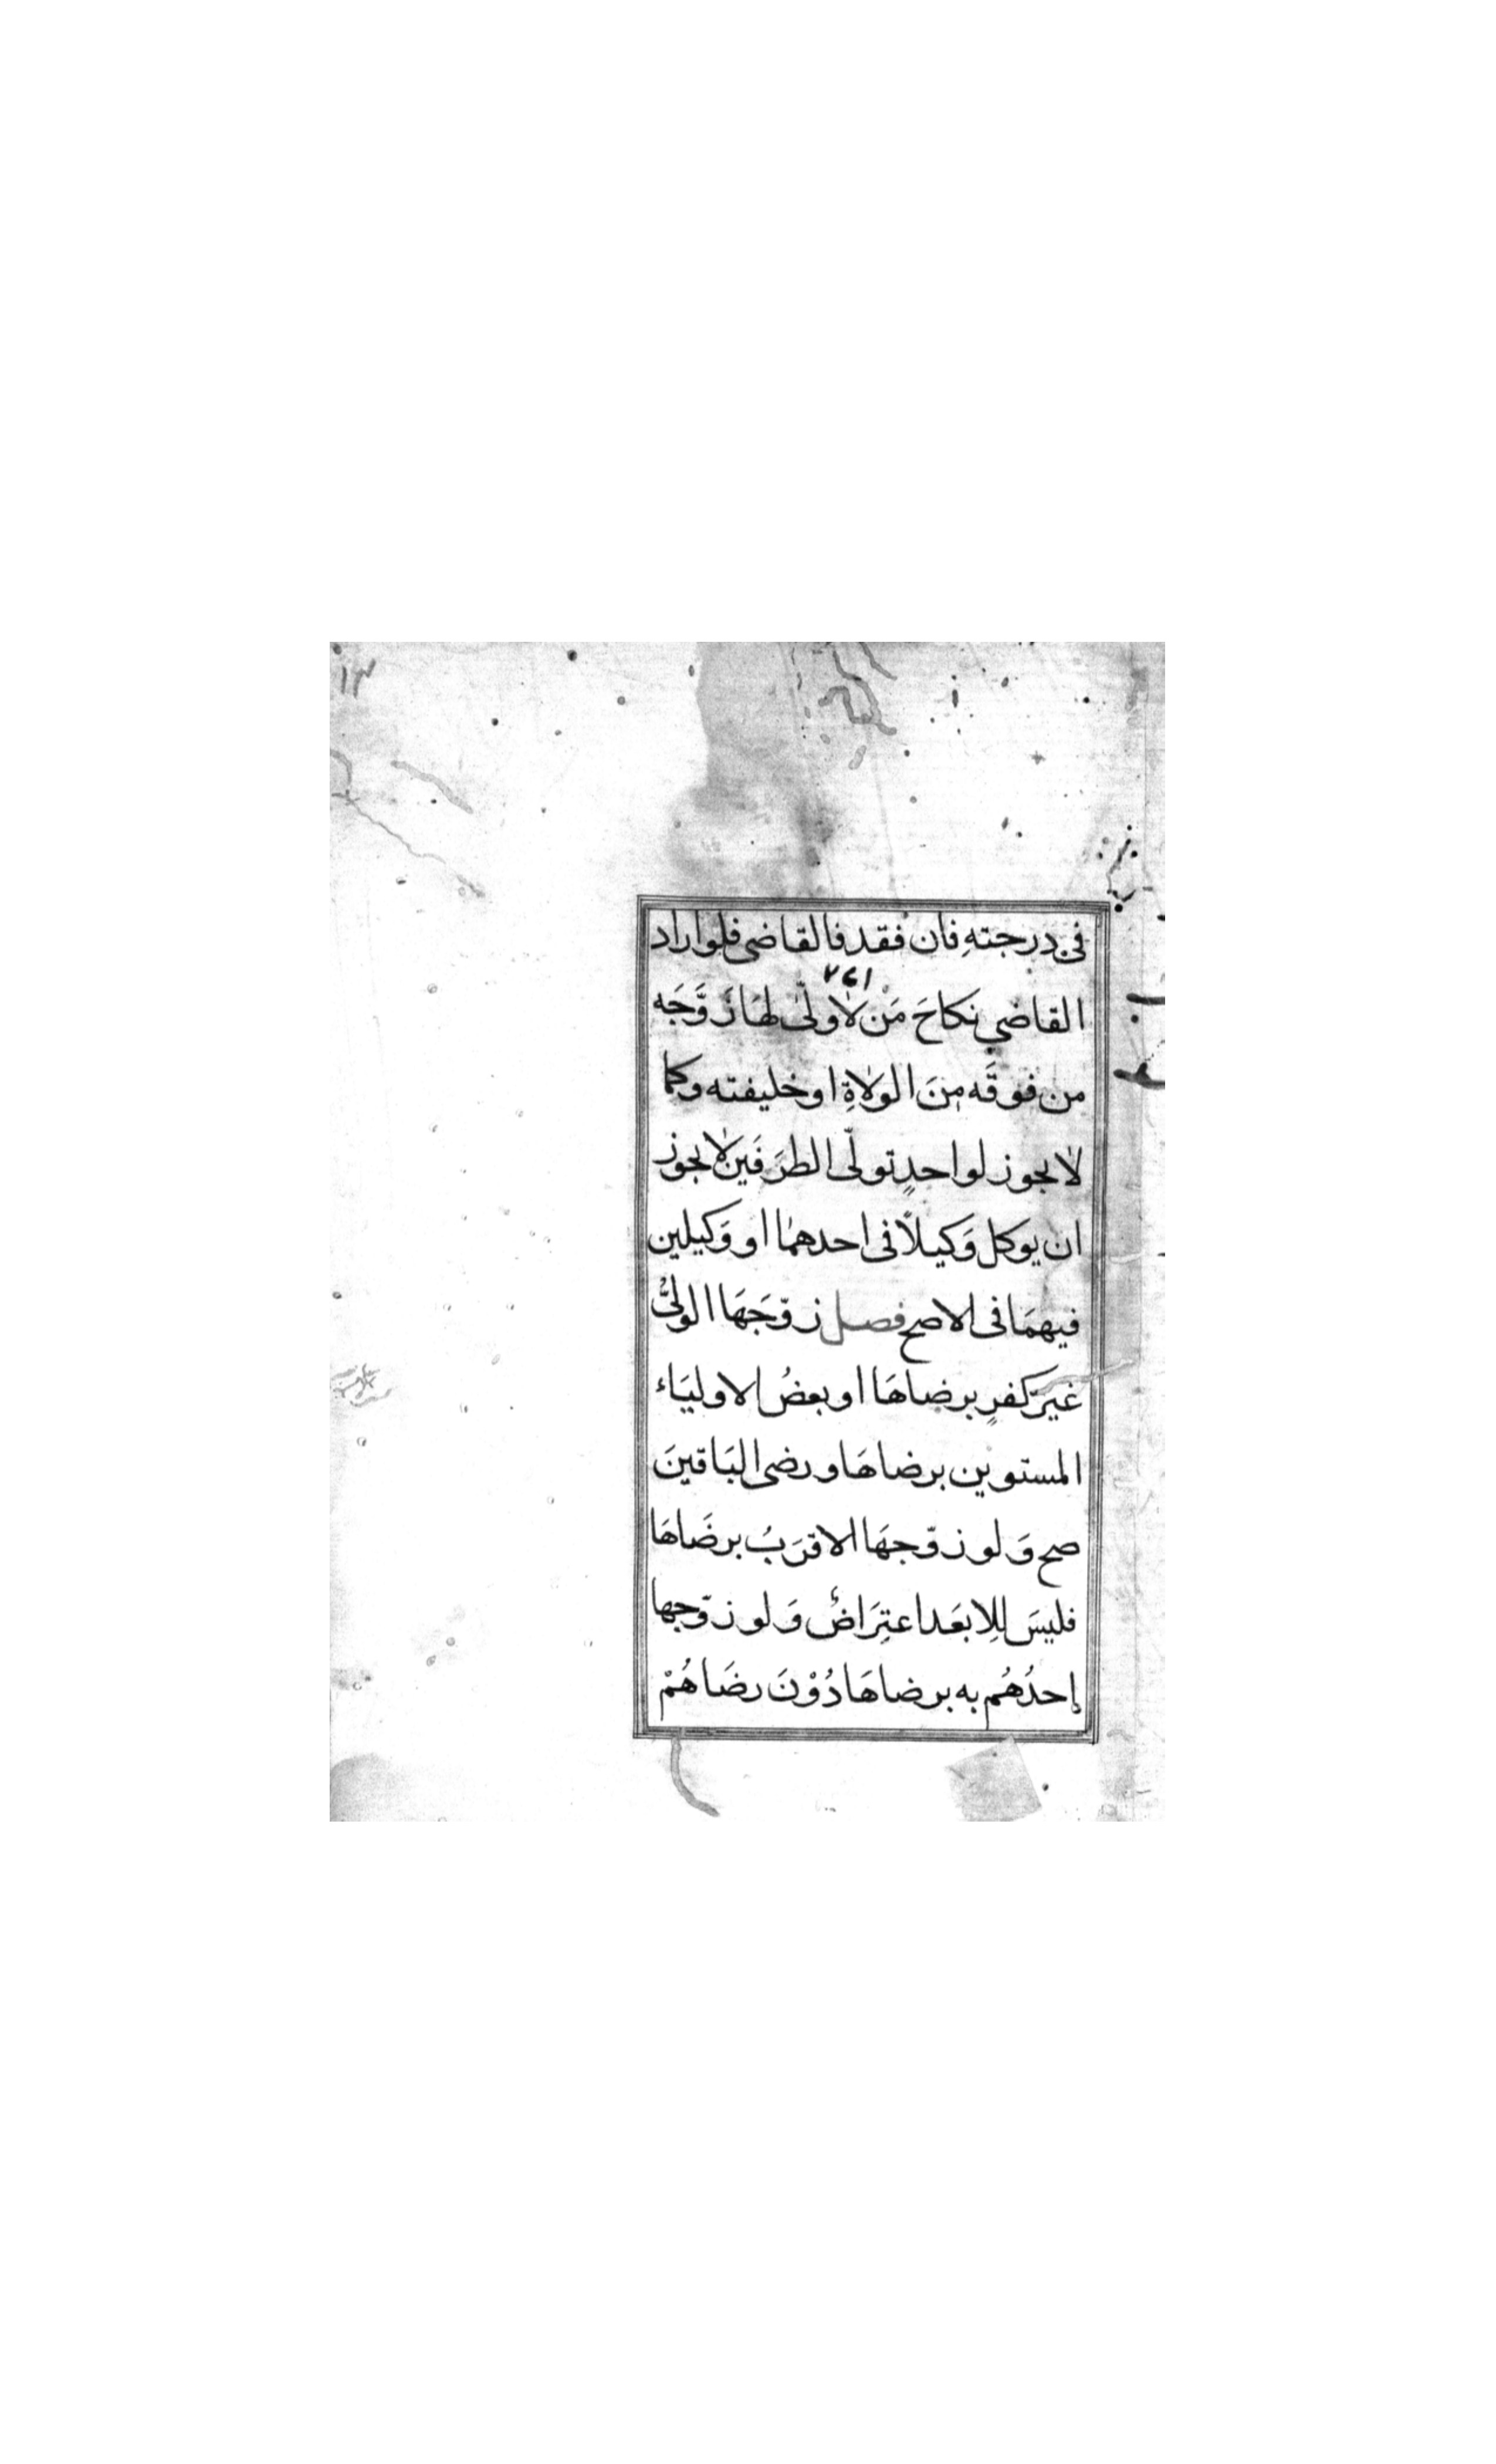 ١٣
في درجتهِ فان فقد فالقاضي فلو اراد
القاضي نكاحَ مَنْ لا ولّى لهَا زَوَّجَه
من فوقَه مِنَ الولاةِ او خليفته وكما
لا يجوز لواحدٍ تولّى الطرَفَين لا يجوز
ان يوكل وَكيلاً فى احدهما او وَكيلين
فيهمَا فى الاصح فصل زوّجَهَا الولىُّ
غيرَ كفرٍ برضاهَا او بعضُ الاوليَاء
المستوين برضاهَا ورضى البَاقينَ
صح وَلو زوّجهَا الاقرَبُ برضَاهَا
فليسَ لِلابعَد اعتِرَاضٌ وَلو زوّجها
إحدُهُم به برضاهَا دُوْنَ رضَاهُمْ